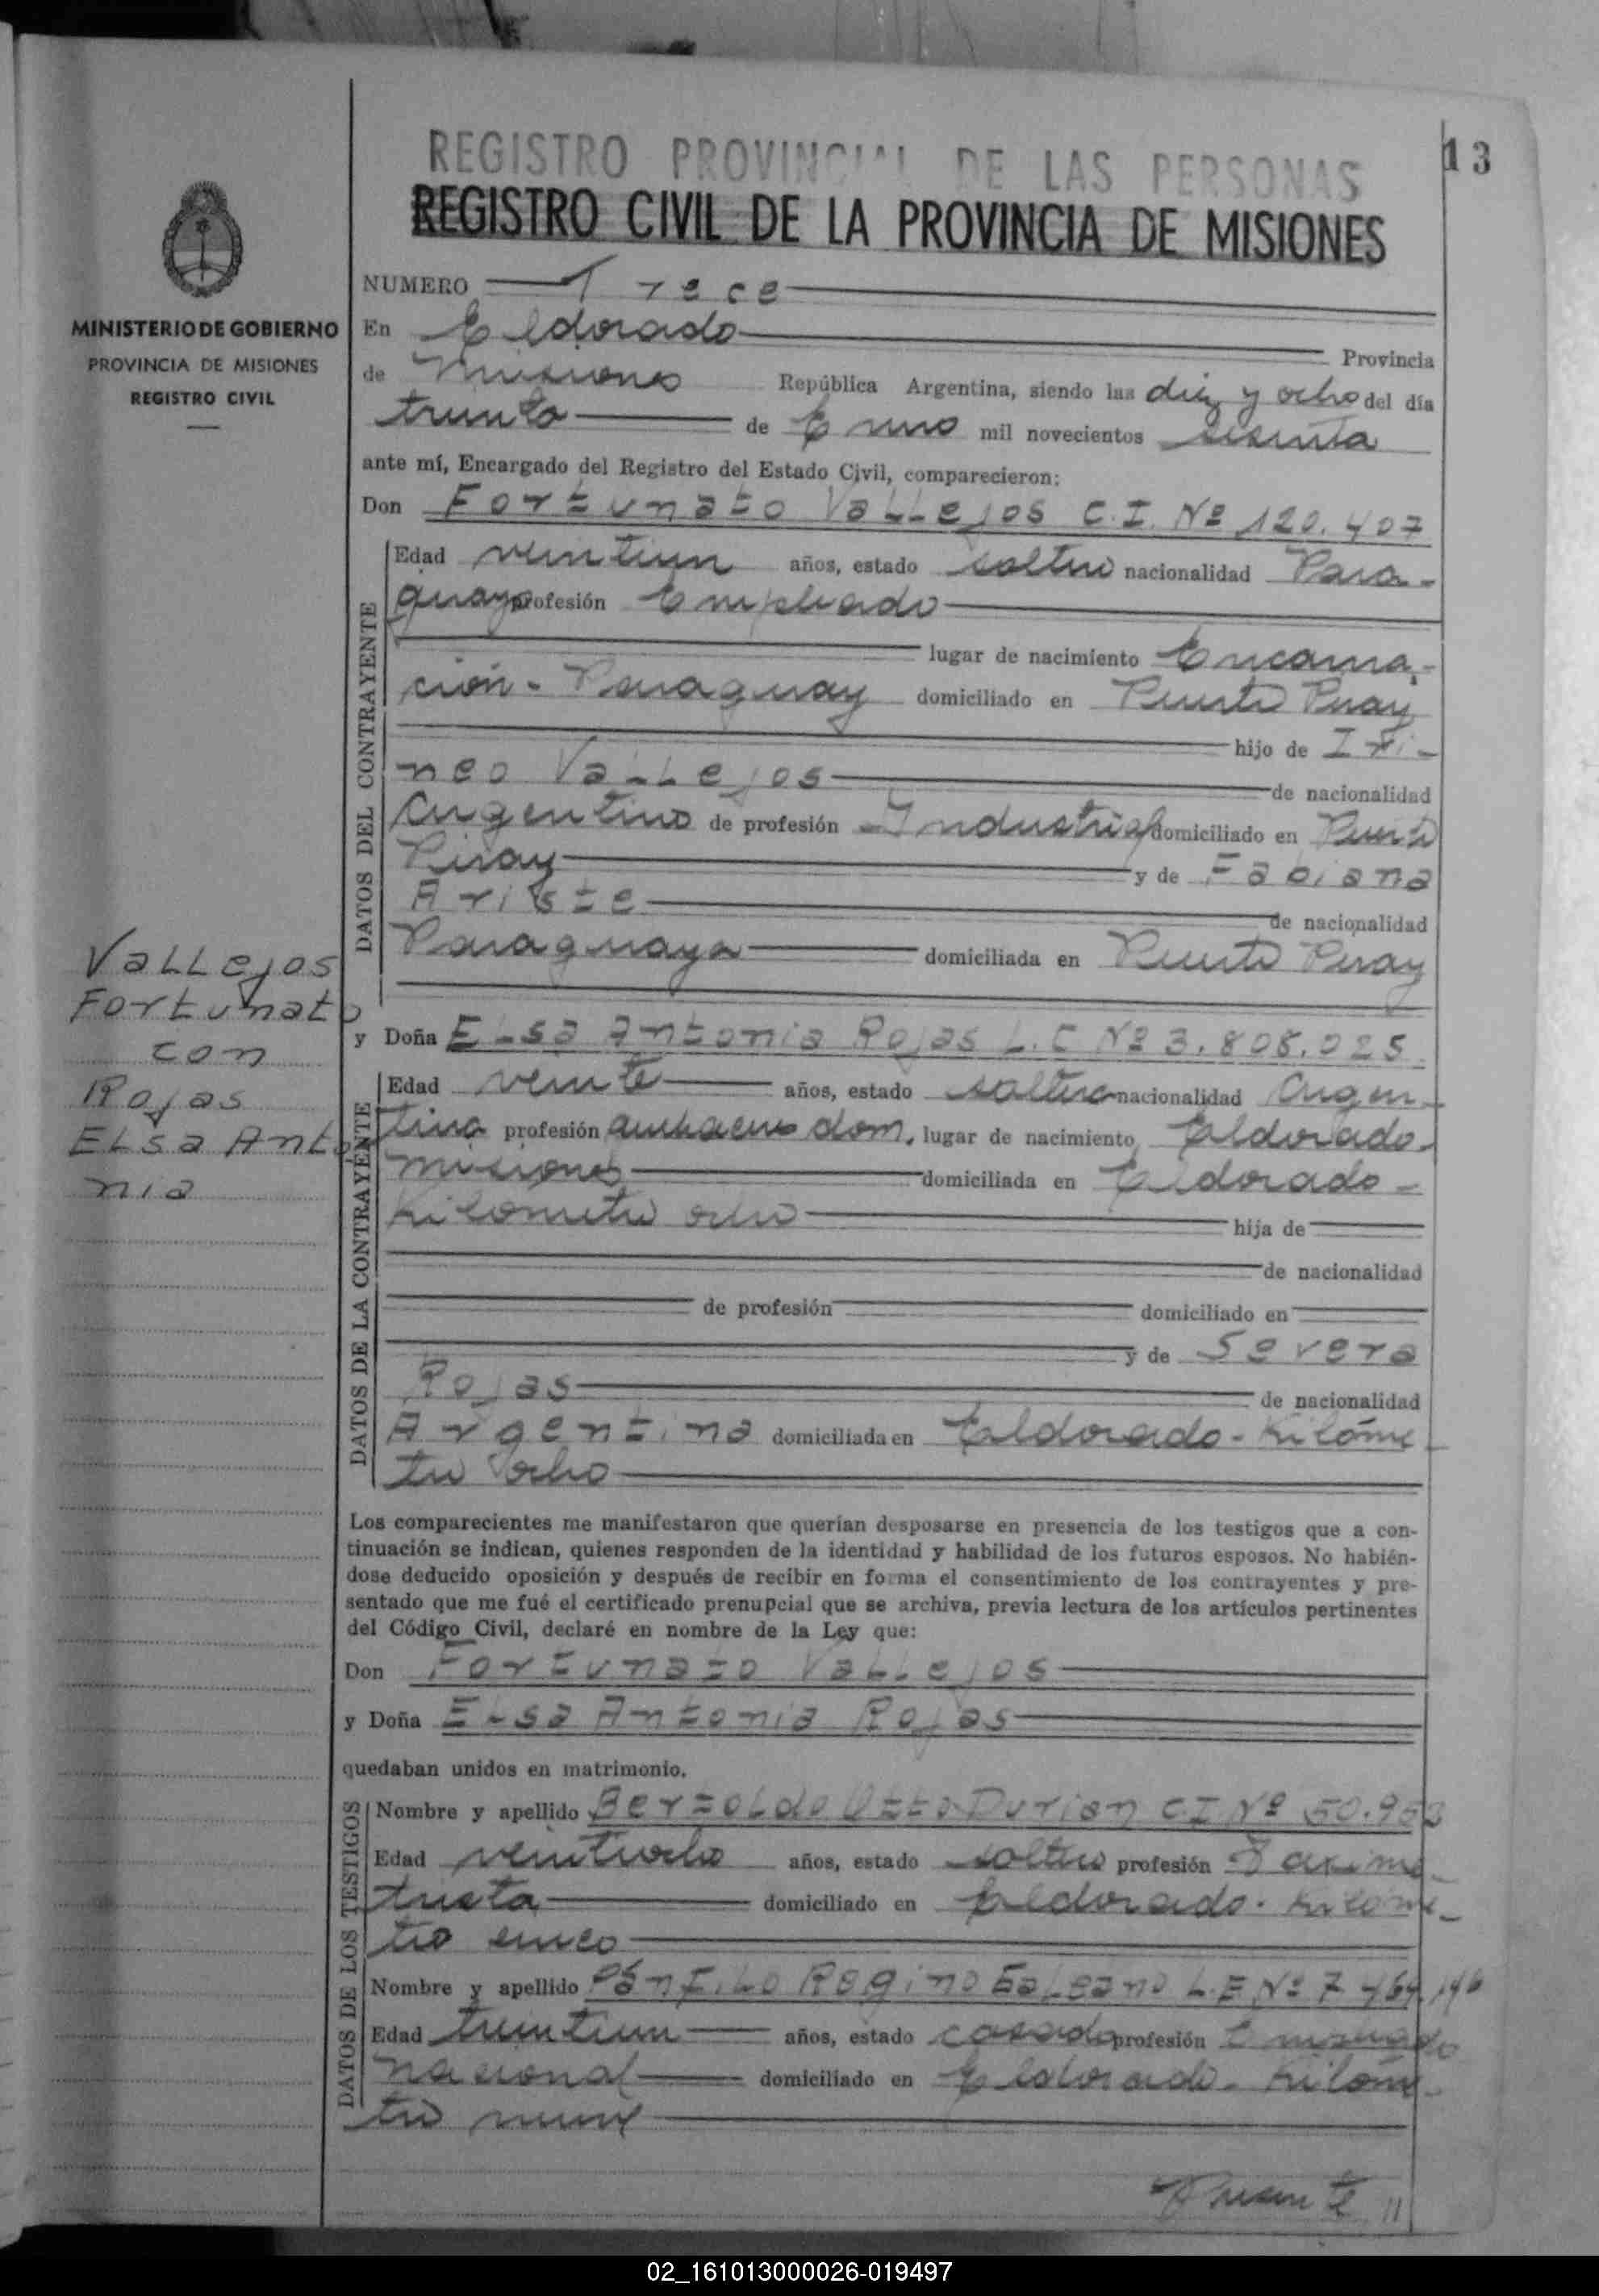 13
REGISTRO PROVINCIAL DE LAS PERSONAS
REGISTRO CIVIL DE LA PROVINCIA DE MISIONES
MINISTERIO DE GOBIERNO
PROVINCIA DE MISIONES
REGISTRO CIVIL
NUMERO Trece
En Eldorado Provincia
de Misiones República Argentina, siendo las diez y ocho del día
treinta de Enero mil novecientos sesenta
ante mí, Encargado del Registro del Estado Civil, comparecieron:
Don Fortunato Vallejos C.I. Nº 120.407
DATOS DEL CONTRAYENTE
Edad veintiun años, estado soltero nacionalidad Para-
guaya profesión Empleado
lugar de nacimiento Encarna-
ción - Paraguay domiciliado en Puerto Piray
hijo de Iri-
neo Vallejos de nacionalidad
Argentino de profesión Industrial domiciliado en Puerto
Piray y de Fabiana
Ariste de nacionalidad
Paraguaya domiciliada en Puerto Piray
Vallejos
Fortunato
con
Rojas
Elsa Anto
nia
y Doña Elsa Antonia Rojas L.C Nº 3.808.025
DATOS DE LA CONTRAYENTE
Edad veinte años, estado soltera nacionalidad Argen-
tina profesión quehaceres dom. lugar de nacimiento Eldorado-
Misiones domiciliada en Eldorado -
Kilometro ocho hija de
de nacionalidad
de profesión domiciliado en
y de Severa
Rojas de nacionalidad
Argentina domiciliada en Eldorado - Kilóme-
tro ocho
Los comparecientes me manifestaron que querían desposarse en presencia de los testigos que a con-
tinuación se indican, quienes responden de la identidad y habilidad de los futuros esposos. No habién-
dose deducido oposición y después de recibir en forma el consentimiento de los contrayentes y pre-
sentado que me fué el certificado prenupcial que se archiva, previa lectura de los artículos pertinentes
del Código Civil, declaré en nombre de la Ley que:
Don Fortunato Vallejos
y Doña Elsa Antonia Rojas
quedaban unidos en matrimonio.
DATOS DE LOS TESTIGOS
Nombre y apellido Bertoldo Otto Durian C.I Nº 50.953
Edad veintiocho años, estado soltero profesión Taxime-
trista domiciliado en Eldorado - Kilóme-
tro cinco
Nombre y apellido Pánfilo Regino Galeano L.E Nº 7.464.146
Edad treintiun años, estado casado profesión Empleado
Nacional domiciliado en Eldorado - Kilóme-
tro nueve
02_161013000026-019497